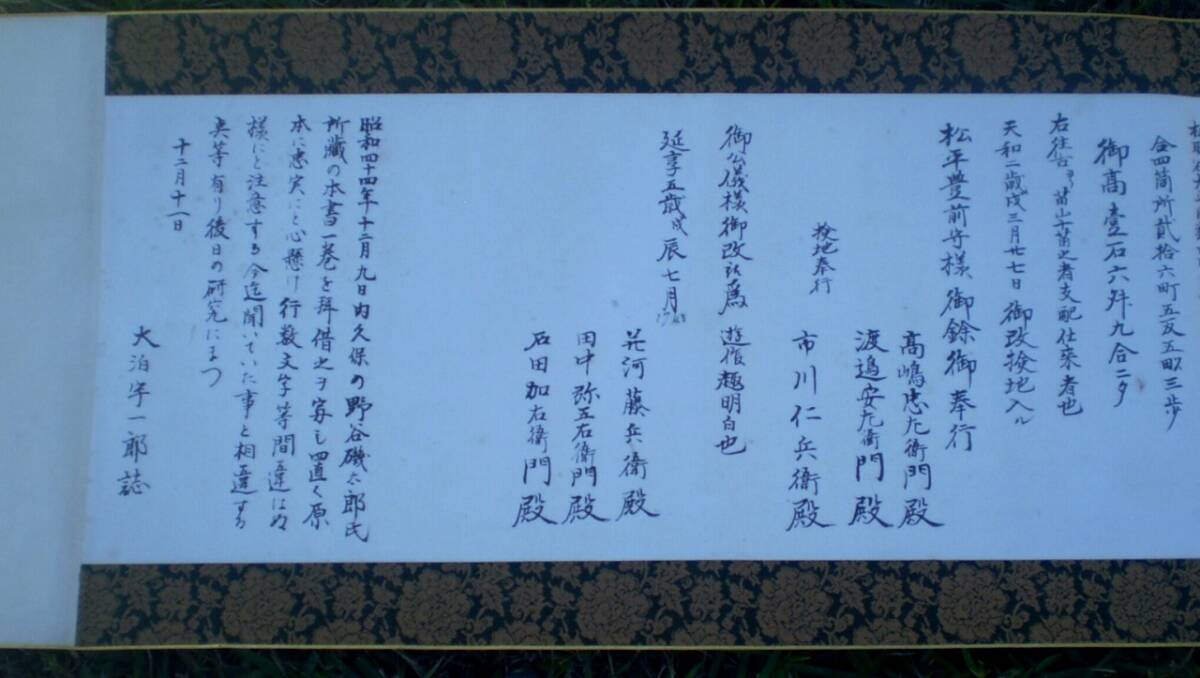 合四箇所貳拾六町五反五畝三歩
御高壹石六舛九合二夕
右往古ゟ
支配仕来者也
天和二歳戌三月廿七日御改検地入ル
松平豊前守様御餘御奉行
高嶋忠左衛門殿
渡邉安左衛門殿
市川仁兵衛殿
検地奉行
御公儀様御改
明白也
延享五歳戊辰七月
1748
花河藤兵衛殿
田中弥五右衛門殿
石田加右衛門殿
昭和四十四年十二月九日内久保の野谷磯太郎氏
所蔵の本書一巻を拝借之ヲ写し置く原
本に忠実にと心懸け行数文字等間違はぬ
様にと注意する今迄聞いていた事と相違する
点等有り後日の研究にまつ
十二月十一日
大泊宇一郎誌